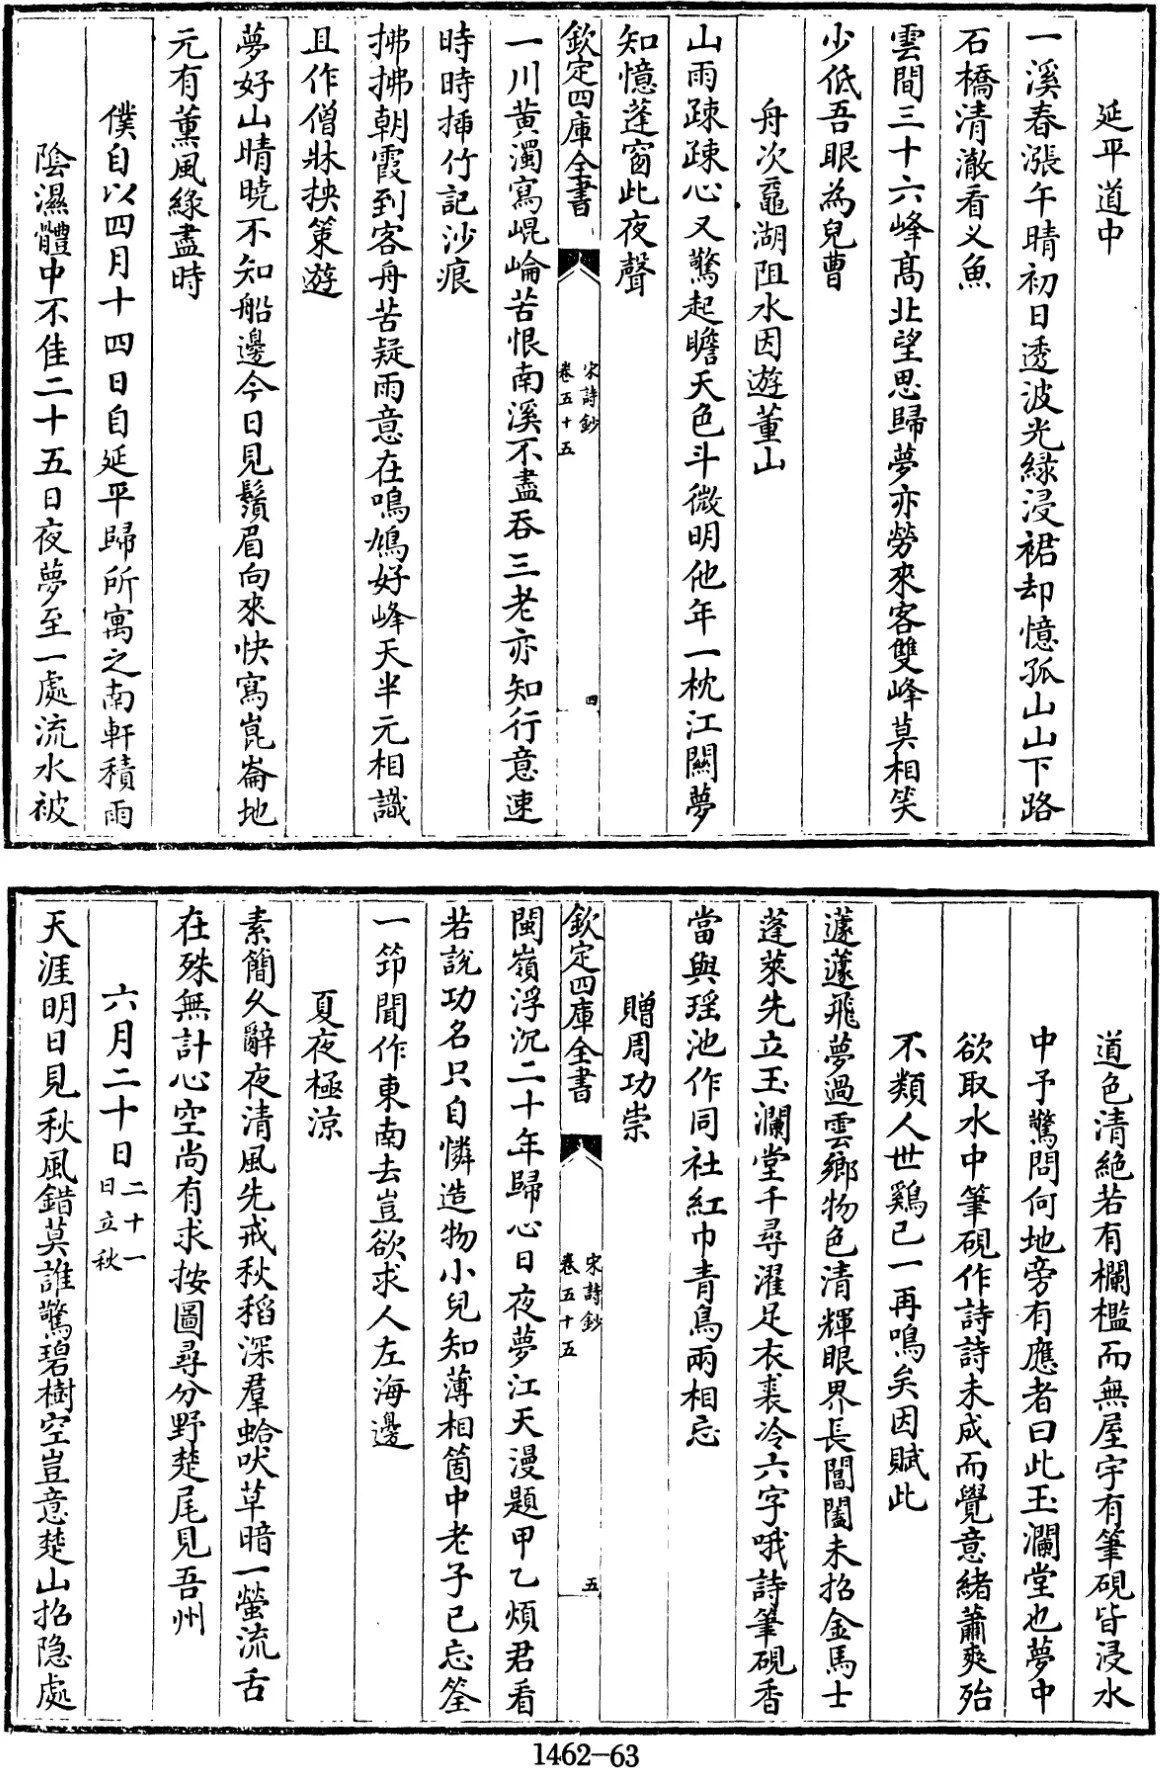 延平道中
一溪春漲午晴初日透波光綠浸裾却憶孤山山下路
石橋清澈看义魚
雲間三十六峰髙北望思歸夢亦勞來客雙峰莫相笑
少低吾眼為兒曹
舟次黿湖阻水因遊董山
山雨踈踈心又驚起瞻天色斗微明他年一枕江闗夢
知憶蓬窗此夜聲
欽定四庫全書
宋詩鈔
卷五十五
四
一川黄濁寫崐崘苦恨南溪不盡吞三老亦知行意速
時時揷竹記沙痕
拂拂朝霞到客舟苦疑雨意在鳴鳩好峰天半元相識
且作僧牀挾䇿遊
夢好山晴曉不知船邊今日見鬚眉向來快寫崑崙地
元有薰風綠盡時
僕自以四月十四日自延平歸所寓之南軒積雨
陰濕體中不佳二十五日夜夢至一處流水被
道色清絶若有欄檻而無屋宇有筆硯皆浸水
中予驚問何地旁有應者曰此玉瀾堂也夢中
欲取水中筆硯作詩詩未成而覺意緒蕭爽殆
不類人世鷄已一再鳴矣因賦此
蘧蘧飛夢過雲鄉物色清輝眼界長閶闔未招金馬士
蓬萊先立玉瀾堂千尋濯足衣裘冷六字哦詩筆硯香
當與瑶池作同社紅巾青鳥兩相忘
贈周功崇
欽定四庫全書
宋詩鈔
卷五十五
五
閩嶺浮沉二十年歸心日夜夢江天漫題甲乙煩君看
若說功名只自憐造物小兒知薄相箇中老子已忘筌
一笻聞作東南去豈欲求人左海邊
夏夜極涼
素簡久辭夜清風先戒秋稻深羣蛤吠草暗一螢流舌
在殊無計心空尚有求按圖尋分野楚尾見吾州
六月二十日二十一日立秋
天涯明日見秋風錯莫誰驚碧樹空豈意楚山招隐處
1462-63